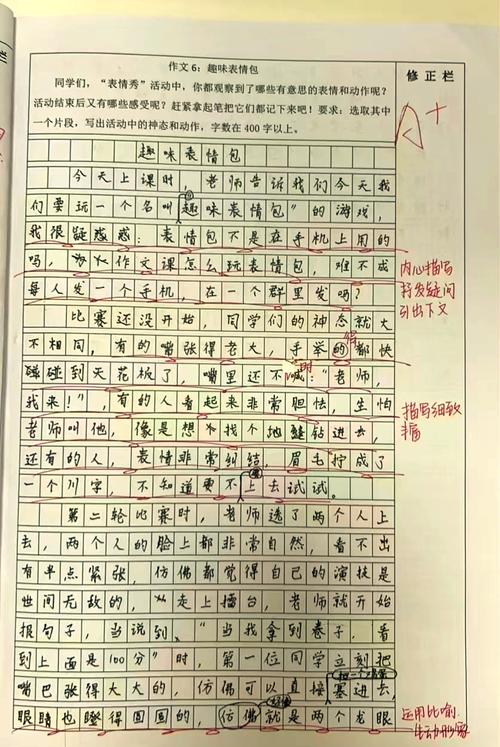 作文6：趣味表情包
同学们，“表情秀”活动中，你都观察到了哪些有意思的表情和动作呢？
活动结束后又有哪些感受呢？赶紧拿起笔把它们都记下来吧！要求：选取其中
一个片段，写出活动中的神态和动作，字数在400字以上。
修正栏
A+
趣味表情包
今天上课时，老师告诉我们今天我
们要玩一个名叫“趣味表情包”的游戏，
我很疑惑：表情包不是在手机上用的
吗，作文课怎么玩表情包，难不成
每人发一个手机，在一个群里发吗？
内心描写
抒发疑问
引出下文
比赛还没开始，同学们的神态就大
不相同，有的嘴张得老大，手举得都快
碰到天花板了，嘴里还不时喊：“老师，
我来！”，有的人看起来非常胆怯，生怕
老师叫他，像是想找个地缝钻进去，
还有的人，表情非常纠结，眉毛拧成了
一个川字，不知道要不要上去试试。
描写细致
丰富
第二轮比赛时，老师选了两个人上
去，两个人的脸上都非常自然，看不出
有半点紧张，仿佛都觉得自己的演技是
世间无敌的，走上擂台，老师就开始
报句子，当说到、“当我拿到卷子，看
到上面是100分”时，第一位同学立刻把
嘴巴张得大大的，仿佛可以直接塞进去，
眼睛也瞪得圆圆的，仿佛就是两个龙眼
运用比喻
生动形象